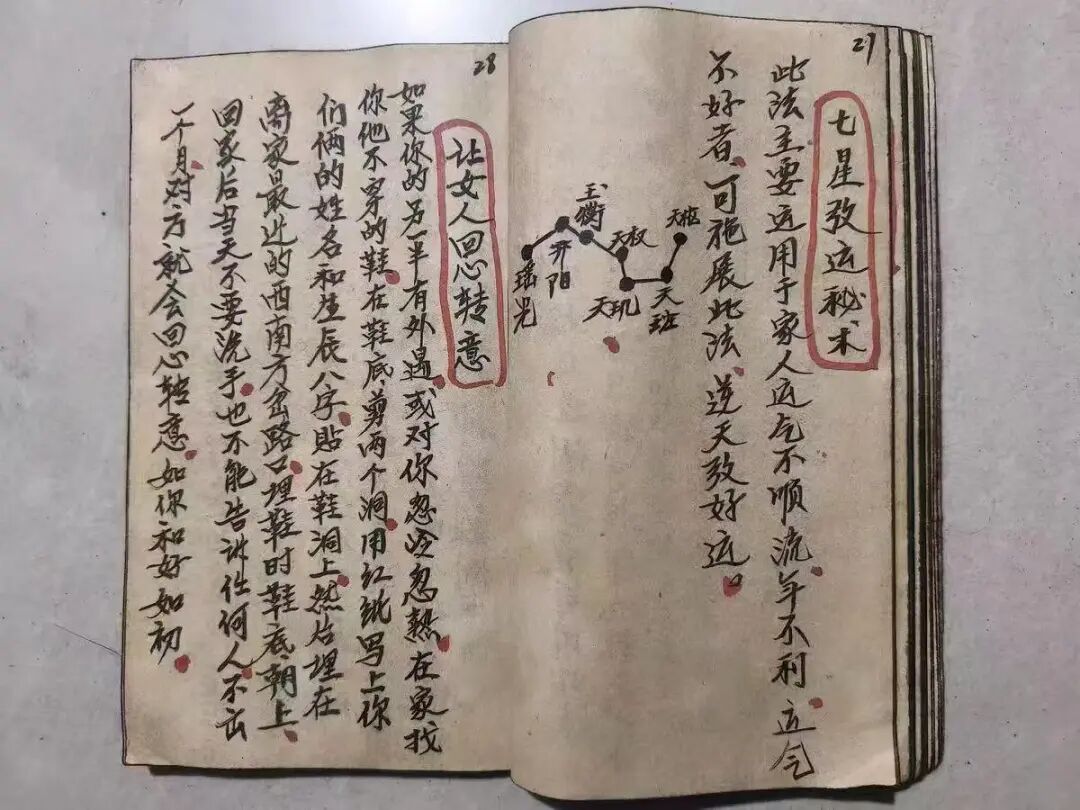 27
七星改运秘术
此法主要运用于家人运气不顺流年不利运气
不好者可施展此法逆天改好运
天枢
天班
天机
天权
玉衡
开阳
瑶光
28
让女人回心转意
如果你的另一半有外遇或对你忽冷忽熱在家找
你他不穿的鞋在鞋底剪两个洞用红纸写上你
们俩的姓名和生辰八字貼在鞋洞上然后埋在
离家最近的西南方岔路口埋鞋时鞋底朝上
回家后当天不要洗手也不能告诉任何人不出
一个月对方就会回心转意如你和好如初